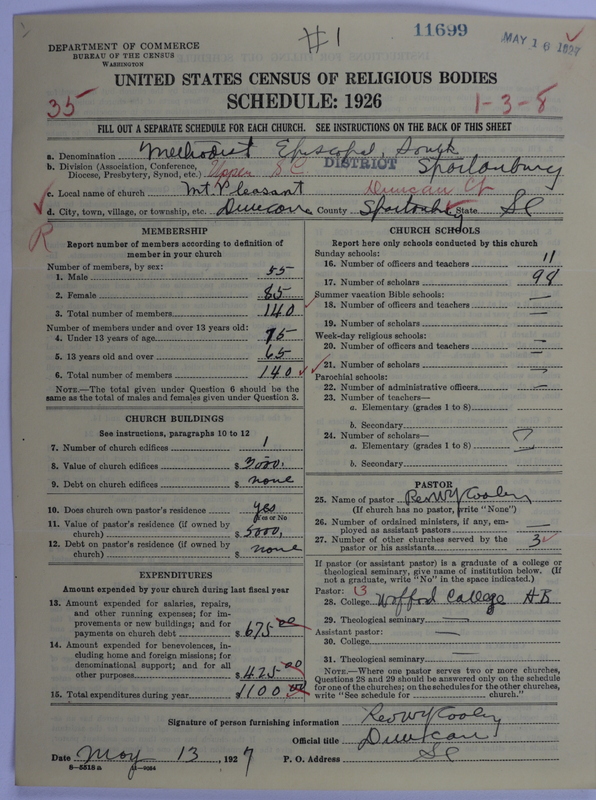 #1
11699
MAY 16 1927
DEPARTMENT OF COMMERCE
BUREAU OF THE CENSUS
WASHINGTON
UNITED STATES CENSUS OF RELIGIOUS BODIES
35
SCHEDULE: 1926
1-3-8
FILL OUT A SEPARATE SCHEDULE FOR EACH CHURCH. SEE INSTRUCTIONS ON THE BACK OF THIS SHEET
a. Denomination Methodist Episcopal, South
b. Division (Association, Conference, Diocese, Presbytery, Synod, etc.) Upper S.C. DISTRICT Spartanburg
c. Local name of church Mt. Pleasant Duncan Ct
d. City, town, village, or township, etc. Duncan County Spartanburg State SC
R
MEMBERSHIP
Report number of members according to definition of
member in your church
Number of members, by sex:
1. Male 55
2. Female 85
3. Total number of members 140
Number of members under and over 13 years old:
4. Under 13 years of age 75
5. 13 years old and over 65
6. Total number of members 140
NOTE.—The total given under Question 6 should be
same as the total of males and females given under Question 3.
CHURCH BUILDINGS
See instructions, paragraphs 10 to 12
7. Number of church edifices 1
8. Value of church edifices $ 3000.
9. Debt on church edifices $ none
10. Does church own pastor's residence yes
Yes or No
11. Value of pastor's residence (if owned by
church) $ 5000,
12. Debt on pastor's residence (if owned by
church) $ none
EXPENDITURES
Amount expended by your church during last fiscal year
13. Amount expended for salaries, repairs,
and other running expenses; for im-
provements or new buildings; and for
payments on church debt $ 675 00
14. Amount expended for benevolences, in-
cluding home and foreign missions; for
denominational support; and for all
other purposes $ 425 00
15. Total expenditures during year $1100 00
CHURCH SCHOOLS
Report here only schools conducted by this church
Sunday schools:
16. Number of officers and teachers 11
17. Number of scholars 98
Summer vacation Bible schools:
18. Number of officers and teachers —
19. Number of scholars —
Week-day religious schools:
20. Number of officers and teachers —
21. Number of scholars —
Parochial schools:
22. Number of administrative officers —
23. Number of teachers—
a. Elementary (grades 1 to 8)
b. Secondary
24. Number of scholars—
a. Elementary (grades 1 to 8)
b. Secondary
PASTOR
25. Name of pastor Rev W Y Cooley
(If church has no pastor, write "None")
26. Number of ordained ministers, if any, em-
ployed as assistant pastors —
27. Number of other churches served by the
pastor or his assistants 3
If pastor (or assistant pastor) is a graduate of a college or
theological seminary, give name of institution below. (If
not a graduate, write "No" in the space indicated.)
Pastor:
28. College Wofford College AB
29. Theological seminary —
Assistant pastor:
30. College —
31. Theological seminary —
NOTE.—Where one pastor serves two or more churches,
Questions 28 and 29 should be answered only on the schedule
for one of the churches; on the schedules for the other churches,
write "See schedule for church."
Signature of person furnishing information Rev W Y Cooley
Official title Duncan
Date May 13, 1927 P. O. Address SC
8—5518 a 11—9064